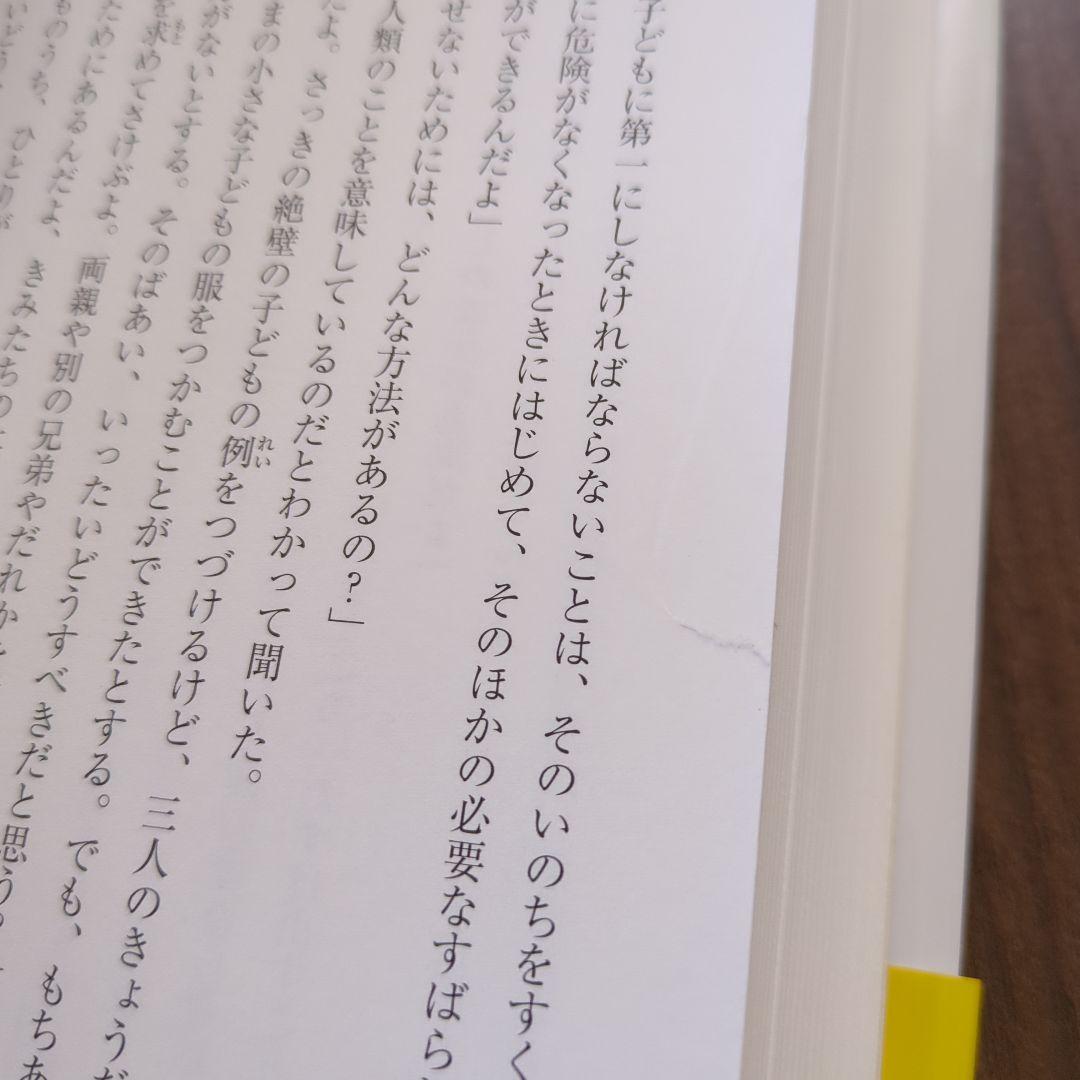 子どもに第一にしなければならないことは、そのいのちをすく
に危険がなくなったときにはじめて、そのほかの必要なすばら
ができるんだよ」
せないためには、どんな方法があるの?」
人類のことを意味しているのだとわかって聞いた。
だよ。さっきの絶壁の子どもの例をつづけるけど、三人のきょうだ
まの小さな子どもの服をつかむことができたとする。でも、もちあ
がないとする。そのばあい、いったいどうすべきだと思う?
を求めてさけぶよ。両親や別の兄弟やだれか
ためにあるんだよ、きみたちの
ものうち、ひとりが